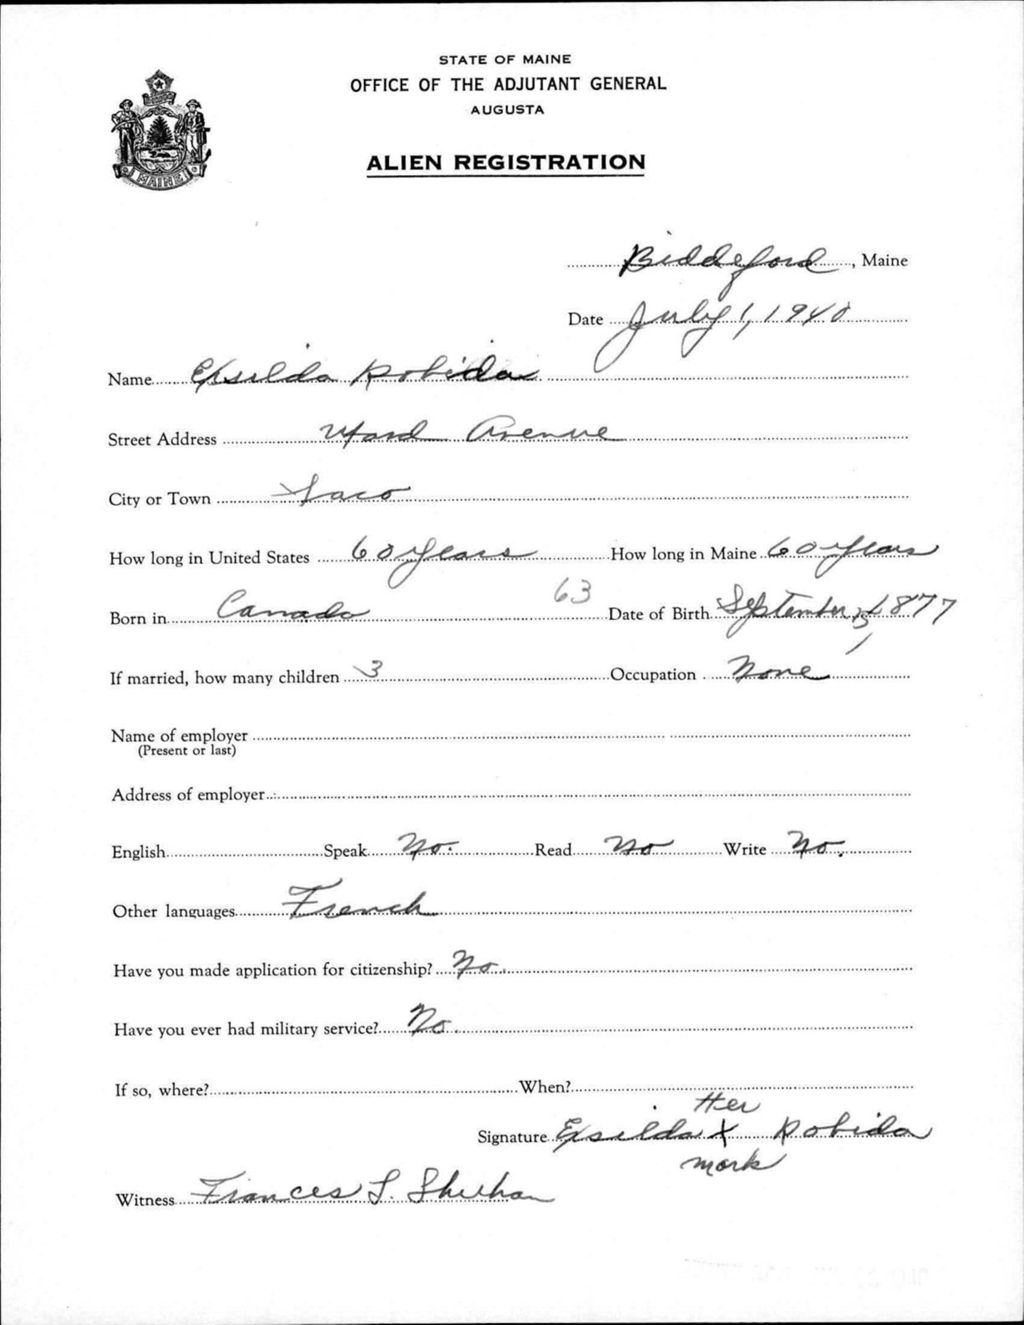 STATE OF MAINE
OFFICE OF THE ADJUTANT GENERAL
AUGUSTA
MAINE
ALIEN REGISTRATION
Biddeford, Maine
Date July 1, 1940
Name Exsilda Robida
Street Address Ward Avenue
City or Town Saco
How long in United States 60 years How long in Maine 60 years
Born in Canada 63 Date of Birth September 1877
If married, how many children 3 Occupation None
Name of employer
(Present or last)
Address of employer
English Speak No. Read No Write No.
Other languages French
Have you made application for citizenship? No.
Have you ever had military service? No.
If so, where? When?
Her
Signature Exsilda X Robida
mark
Witness Frances L. Sheehan